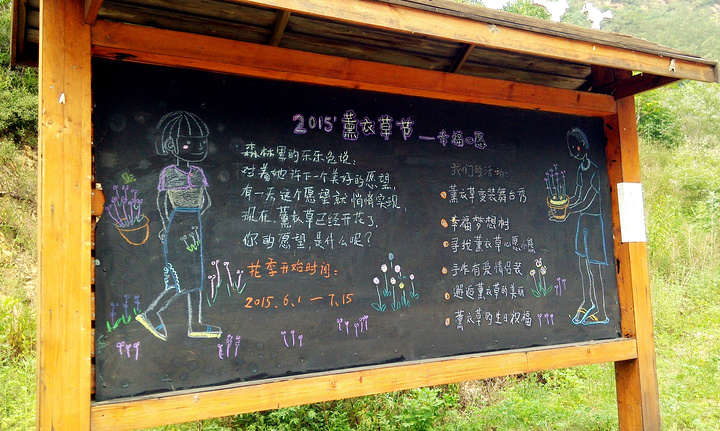 2015'薰衣草节—幸福心愿
森林里的乐乐兔说:
对着她许下一个美好的愿望,
有一天这个愿望就悄悄实现,
现在,薰衣草已经开花了,
你的愿望,是什么呢?
花季开始时间:
2015.6.1—7.15
我们的活动:
薰衣草变装舞台秀
幸福梦想树
寻找薰衣草心愿小熊
手作有爱情侣衣
邂逅薰衣草的美丽
薰衣草的生日祝福